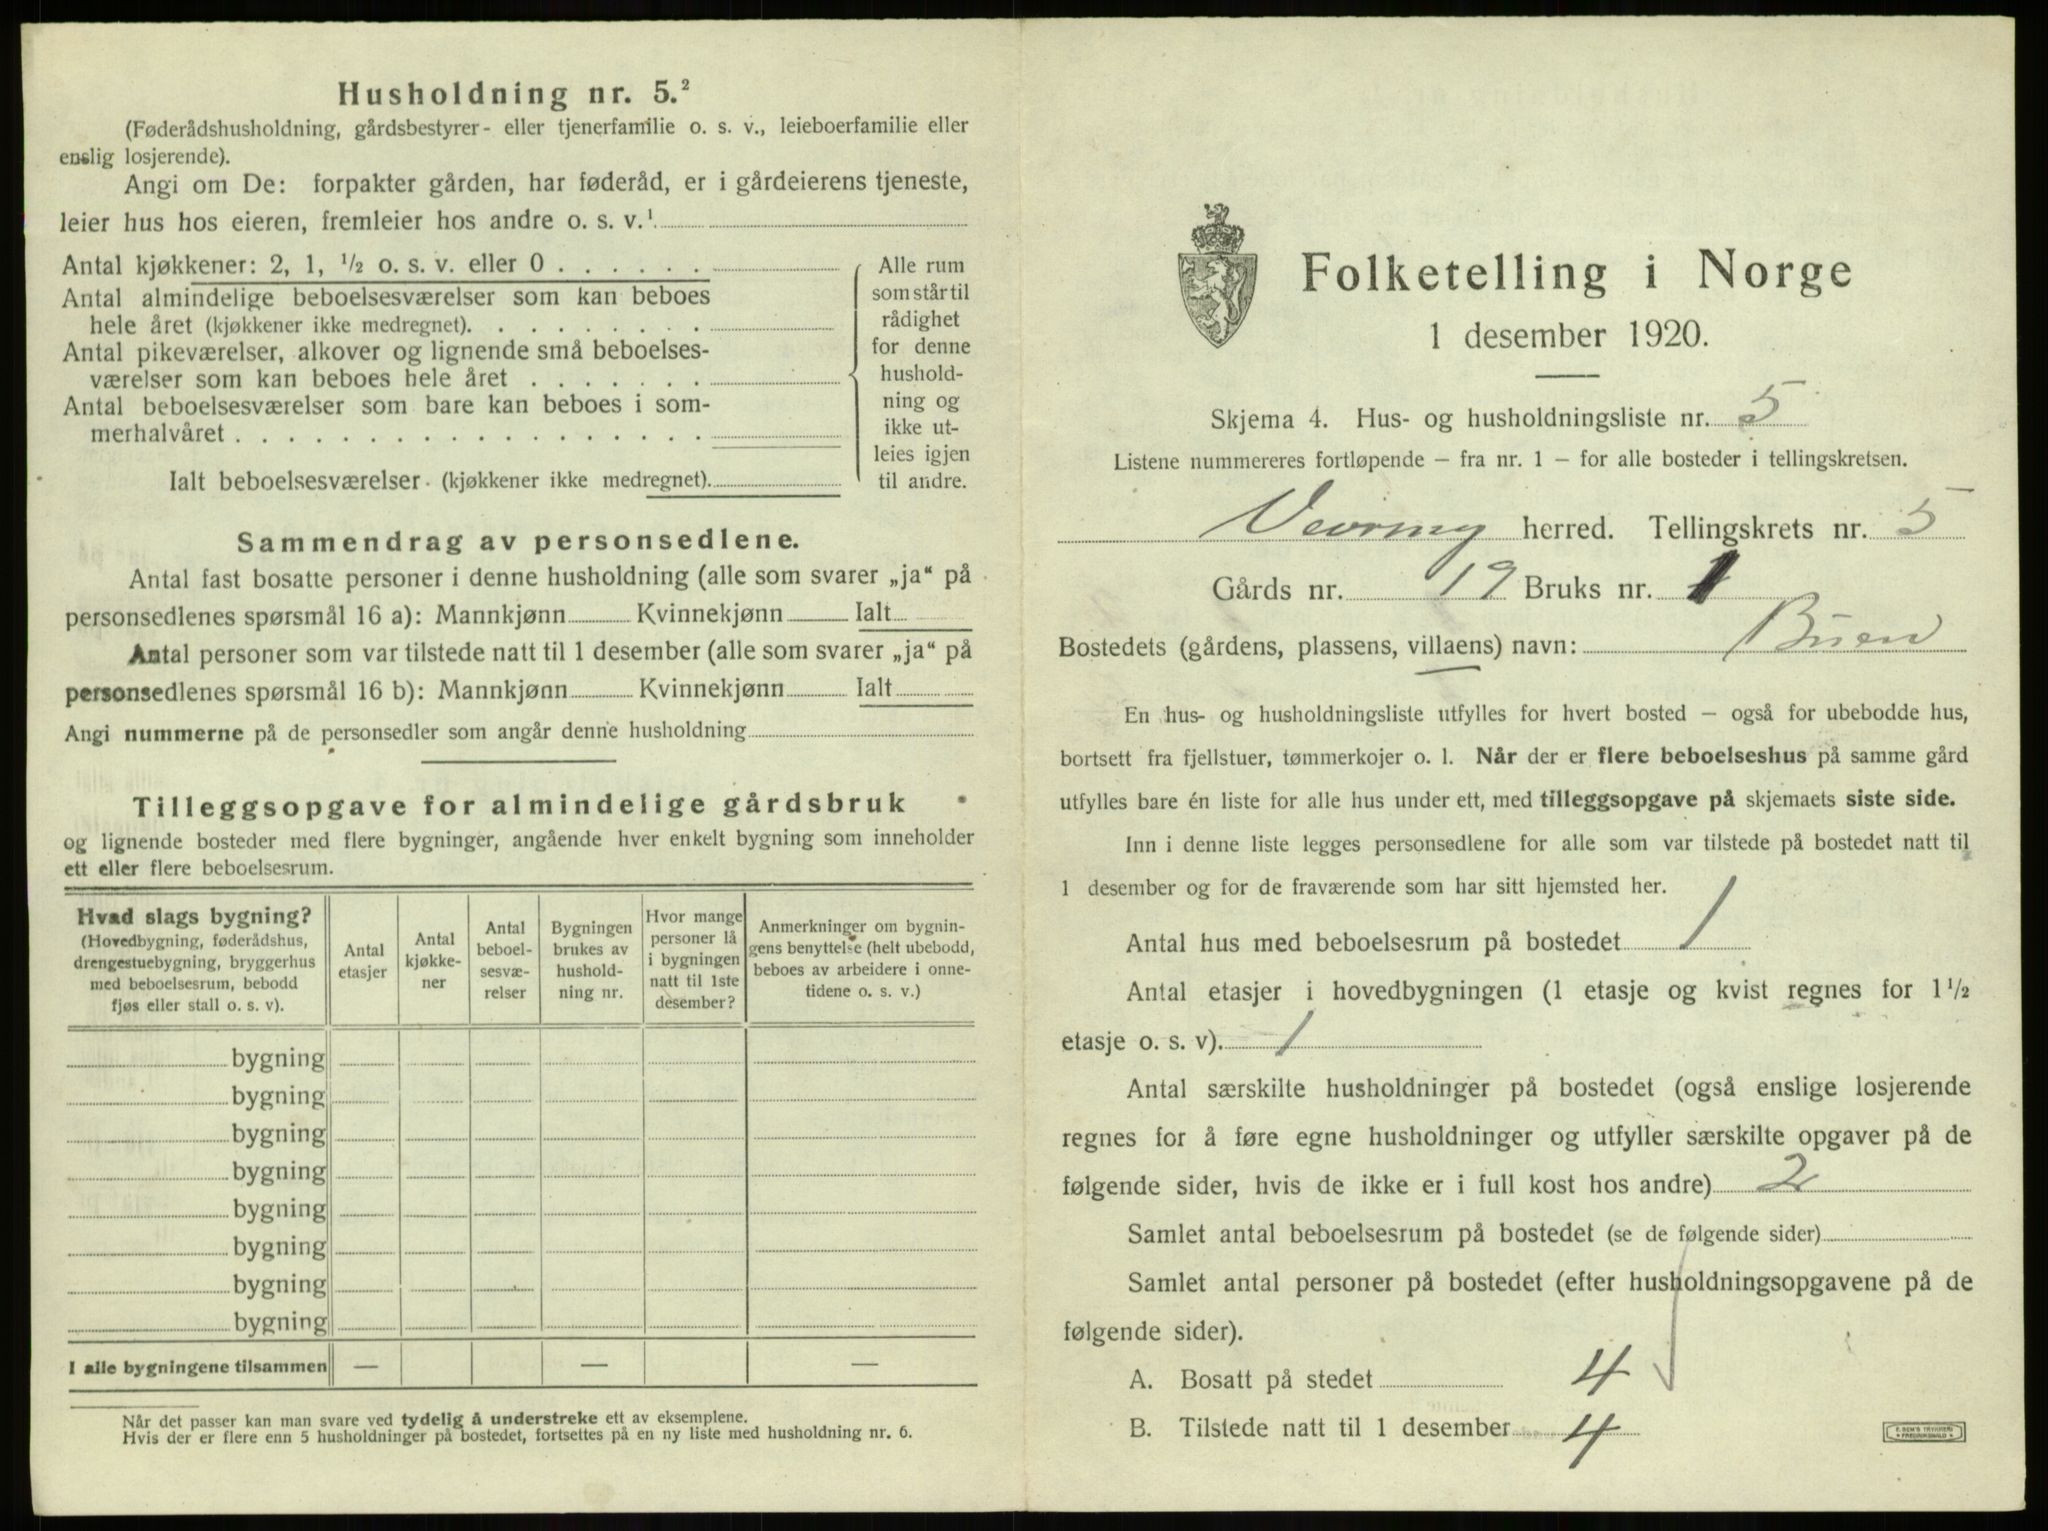 Husholdning nr. 5.²
(Føderådshusholdning, gårdsbestyrer- eller tjenerfamilie o. s. v., leieboerfamilie eller
enslig losjerende).
Angi om De: forpakter gården, har føderåd, er i gårdeierens tjeneste,
leier hus hos eieren, fremleier hos andre o. s. v.¹
Antal kjøkkener: 2, 1, ½ o. s. v. eller 0 . . . . . .
Antal almindelige beboelsesværelser som kan beboes
hele året (kjøkkener ikke medregnet). . . . . . . . .
Antal pikeværelser, alkover og lignende små beboelses-
værelser som kan beboes hele året . . . . . . .
Antal beboelsesværelser som bare kan beboes i som-
merhalvåret . . . . . . . . . . . . . . . . . .
Ialt beboelsesværelser (kjøkkener ikke medregnet).
Alle rum
som står til
rådighet
for denne
hushold-
ning og
ikke ut-
leies igjen
til andre.
Sammendrag av personsedlene.
Antal fast bosatte personer i denne husholdning (alle som svarer „ja“ på
personsedlenes spørsmål 16 a): Mannkjønn Kvinnekjønn Ialt
Antal personer som var tilstede natt til 1 desember (alle som svarer „ja“ på
personsedlenes spørsmål 16 b): Mannkjønn Kvinnekjønn Ialt
Angi nummerne på de personsedler som angår denne husholdning
Tilleggsopgave for almindelige gårdsbruk
og lignende bosteder med flere bygninger, angående hver enkelt bygning som inneholder
ett eller flere beboelsesrum.
Hvad slags bygning?
(Hovedbygning, føderådshus,
drengestuebygning, bryggerhus
med beboelsesrum, bebodd
fjøs eller stall o. s. v).
Antal
etasjer
Antal
kjøkke-
ner
Antal
beboel-
sesvæ-
relser
Bygningen
brukes av
hushold-
ning nr.
Hvor mange
personer lå
i bygningen
natt til 1ste
desember?
Anmerkninger om bygnin-
gens benyttelse (helt ubebodd,
beboes av arbeidere i onne-
tidene o. s. v.)
bygning
bygning
bygning
bygning
bygning
bygning
bygning
bygning
I alle bygningene tilsammen — — —
Når det passer kan man svare ved tydelig å understreke ett av eksemplene.
Hvis der er flere enn 5 husholdninger på bostedet, fortsettes på en ny liste med husholdning nr. 6.
Folketelling i Norge
1 desember 1920.
Skjema 4. Hus- og husholdningsliste nr. 5
Listene nummereres fortløpende – fra nr. 1 – for alle bosteder i tellingskretsen.
Vevring herred. Tellingskrets nr. 5
Gårds nr. 19 Bruks nr. 1
Bostedets (gårdens, plassens, villaens) navn: Buen
En hus- og husholdningsliste utfylles for hvert bosted – også for ubebodde hus,
bortsett fra fjellstuer, tømmerkojer o. l. Når der er flere beboelseshus på samme gård
utfylles bare én liste for alle hus under ett, med tilleggsopgave på skjemaets siste side.
Inn i denne liste legges personsedlene for alle som var tilstede på bostedet natt til
1 desember og for de fraværende som har sitt hjemsted her.
Antal hus med beboelsesrum på bostedet 1
Antal etasjer i hovedbygningen (1 etasje og kvist regnes for 1½
etasje o. s. v). 1
Antal særskilte husholdninger på bostedet (også enslige losjerende
regnes for å føre egne husholdninger og utfyller særskilte opgaver på de
følgende sider, hvis de ikke er i full kost hos andre) 2
Samlet antal beboelsesrum på bostedet (se de følgende sider)
Samlet antal personer på bostedet (efter husholdningsopgavene på de
følgende sider).
A. Bosatt på stedet 4
B. Tilstede natt til 1 desember 4